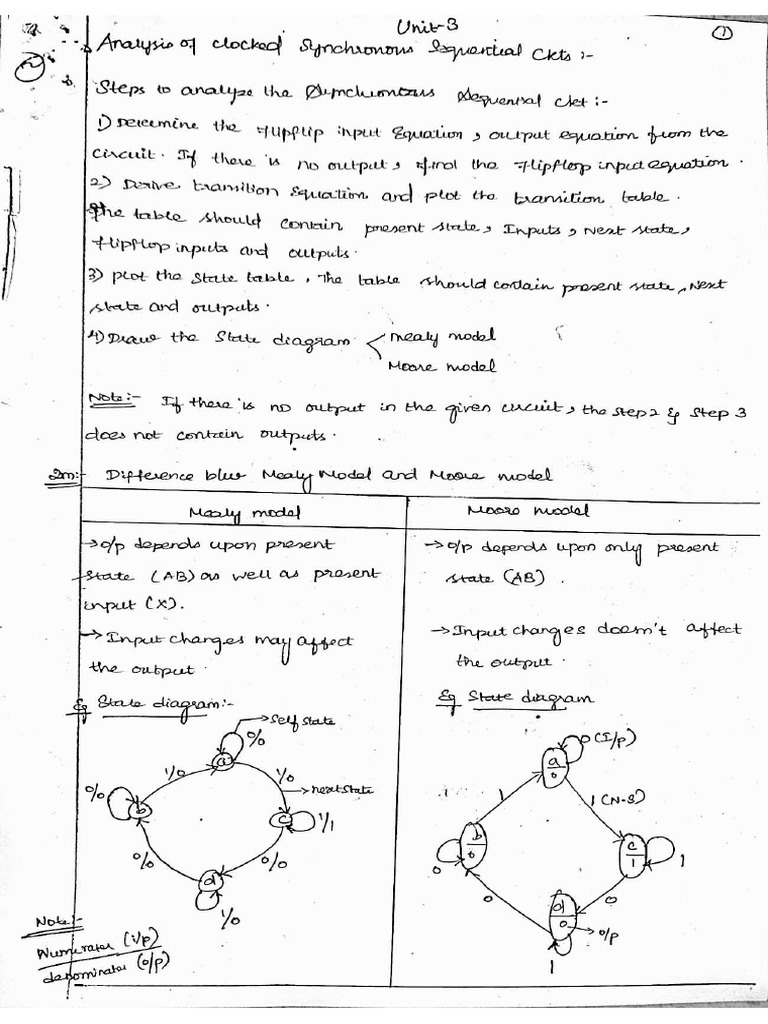 Unit-3
1
Analysis of clocked Synchronous Sequential Ckts :-
Steps to analyze the Synchronous Sequential Ckt :-
1) Determine the flipflip input Equation, output equation from the
circuit. If there is no output, find the flipflop input equation.
2) Derive transition Equation and plot the transition table.
The table should contain present state, Inputs, Next state,
flipflop inputs and outputs.
3) plot the State table, The table should contain present state, Next
state and outputs.
4) Draw the State diagram < Mealy model
Moore model
Note:- If there is no output in the given circuit, the step 2 & step 3
does not contain outputs.
2m:- Difference b/w Mealy Model and Moore model
Mealy model
Moore model
→ o/p depends upon present
state (AB) as well as present
input (X).
→ Input changes may affect
the output.
Eg State diagram:-
→ o/p depends upon only present
state (AB).
→ Input changes doesn't affect
the output.
Eg State diagram
→ Self state
0/0
a
1/0
1/0
→ next state
0/0
b
c
1/1
0/0
0/0
d
1/0
Note:-
Numerator (i/p)
denominator (o/p)
0 (I/p)
a/0
1
1 (N-S)
b/0
c/1
0
1
0
0
d/0
→ o/p
1